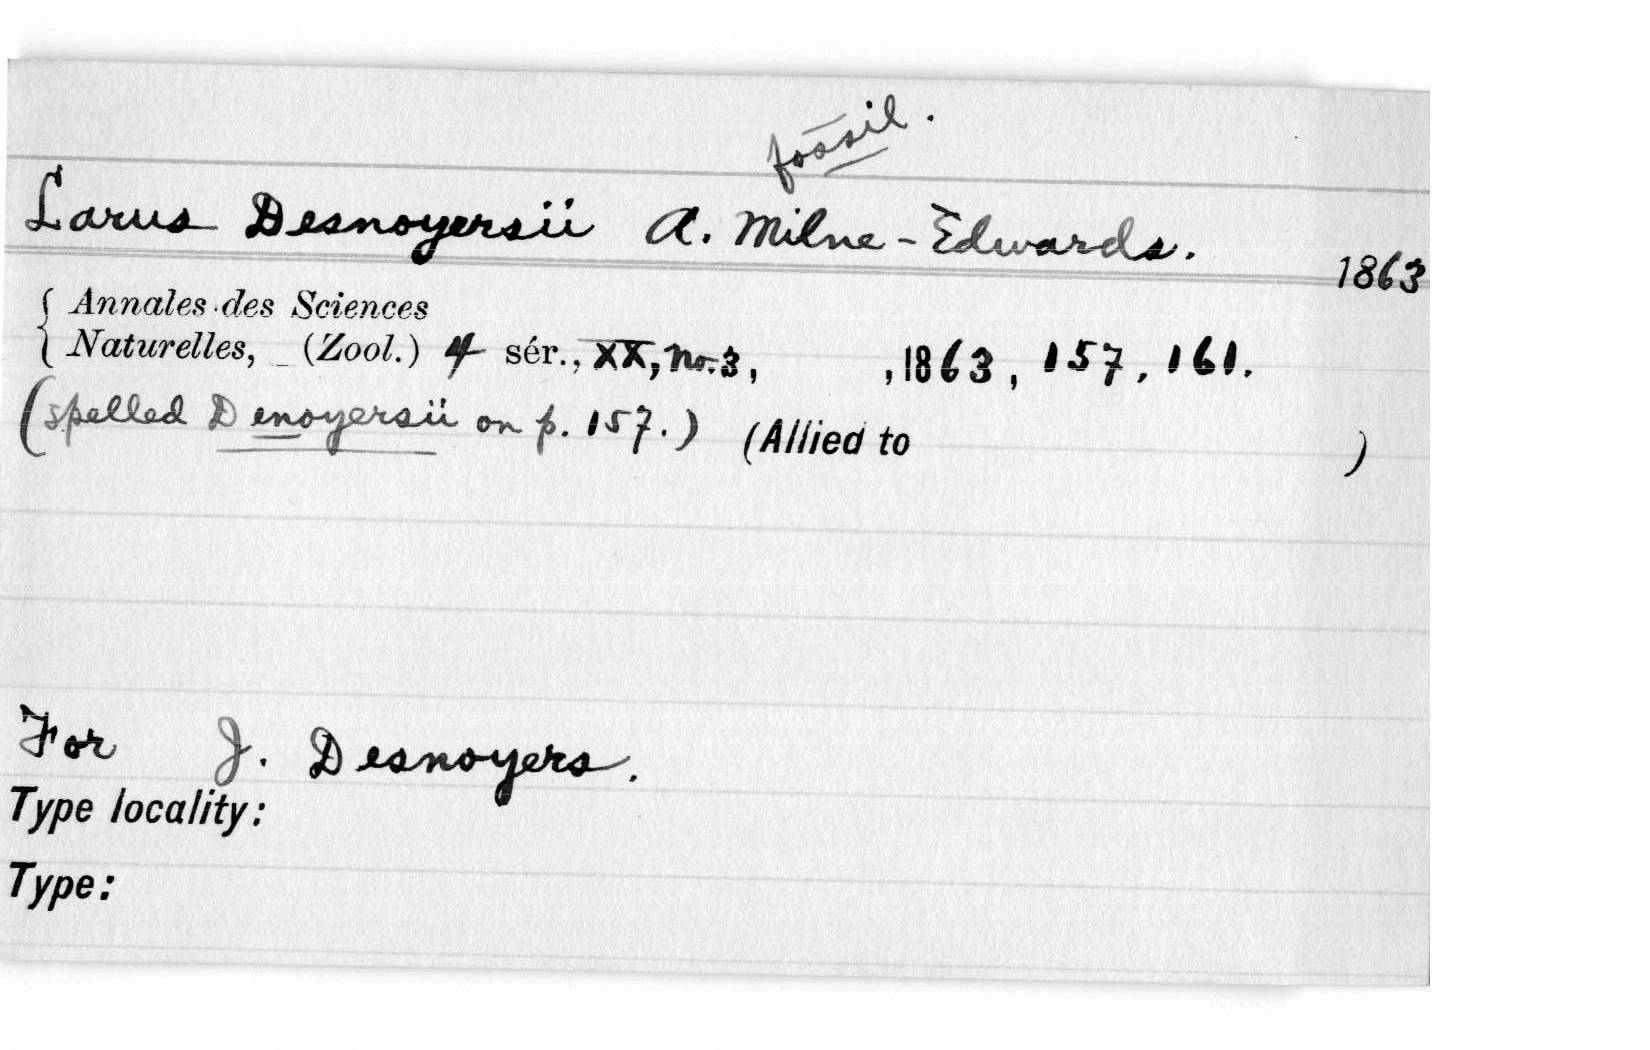 fossil.
Larus Desnoyersii A. Milne-Edwards.
1863
{ Annales des Sciences
{ Naturelles, (Zool.) 4 sér., XX, No. 3, , 1863, 157, 161.
(spelled Denoyersii on p. 157.) (Allied to )
For J. Desnoyers.
Type locality:
Type: